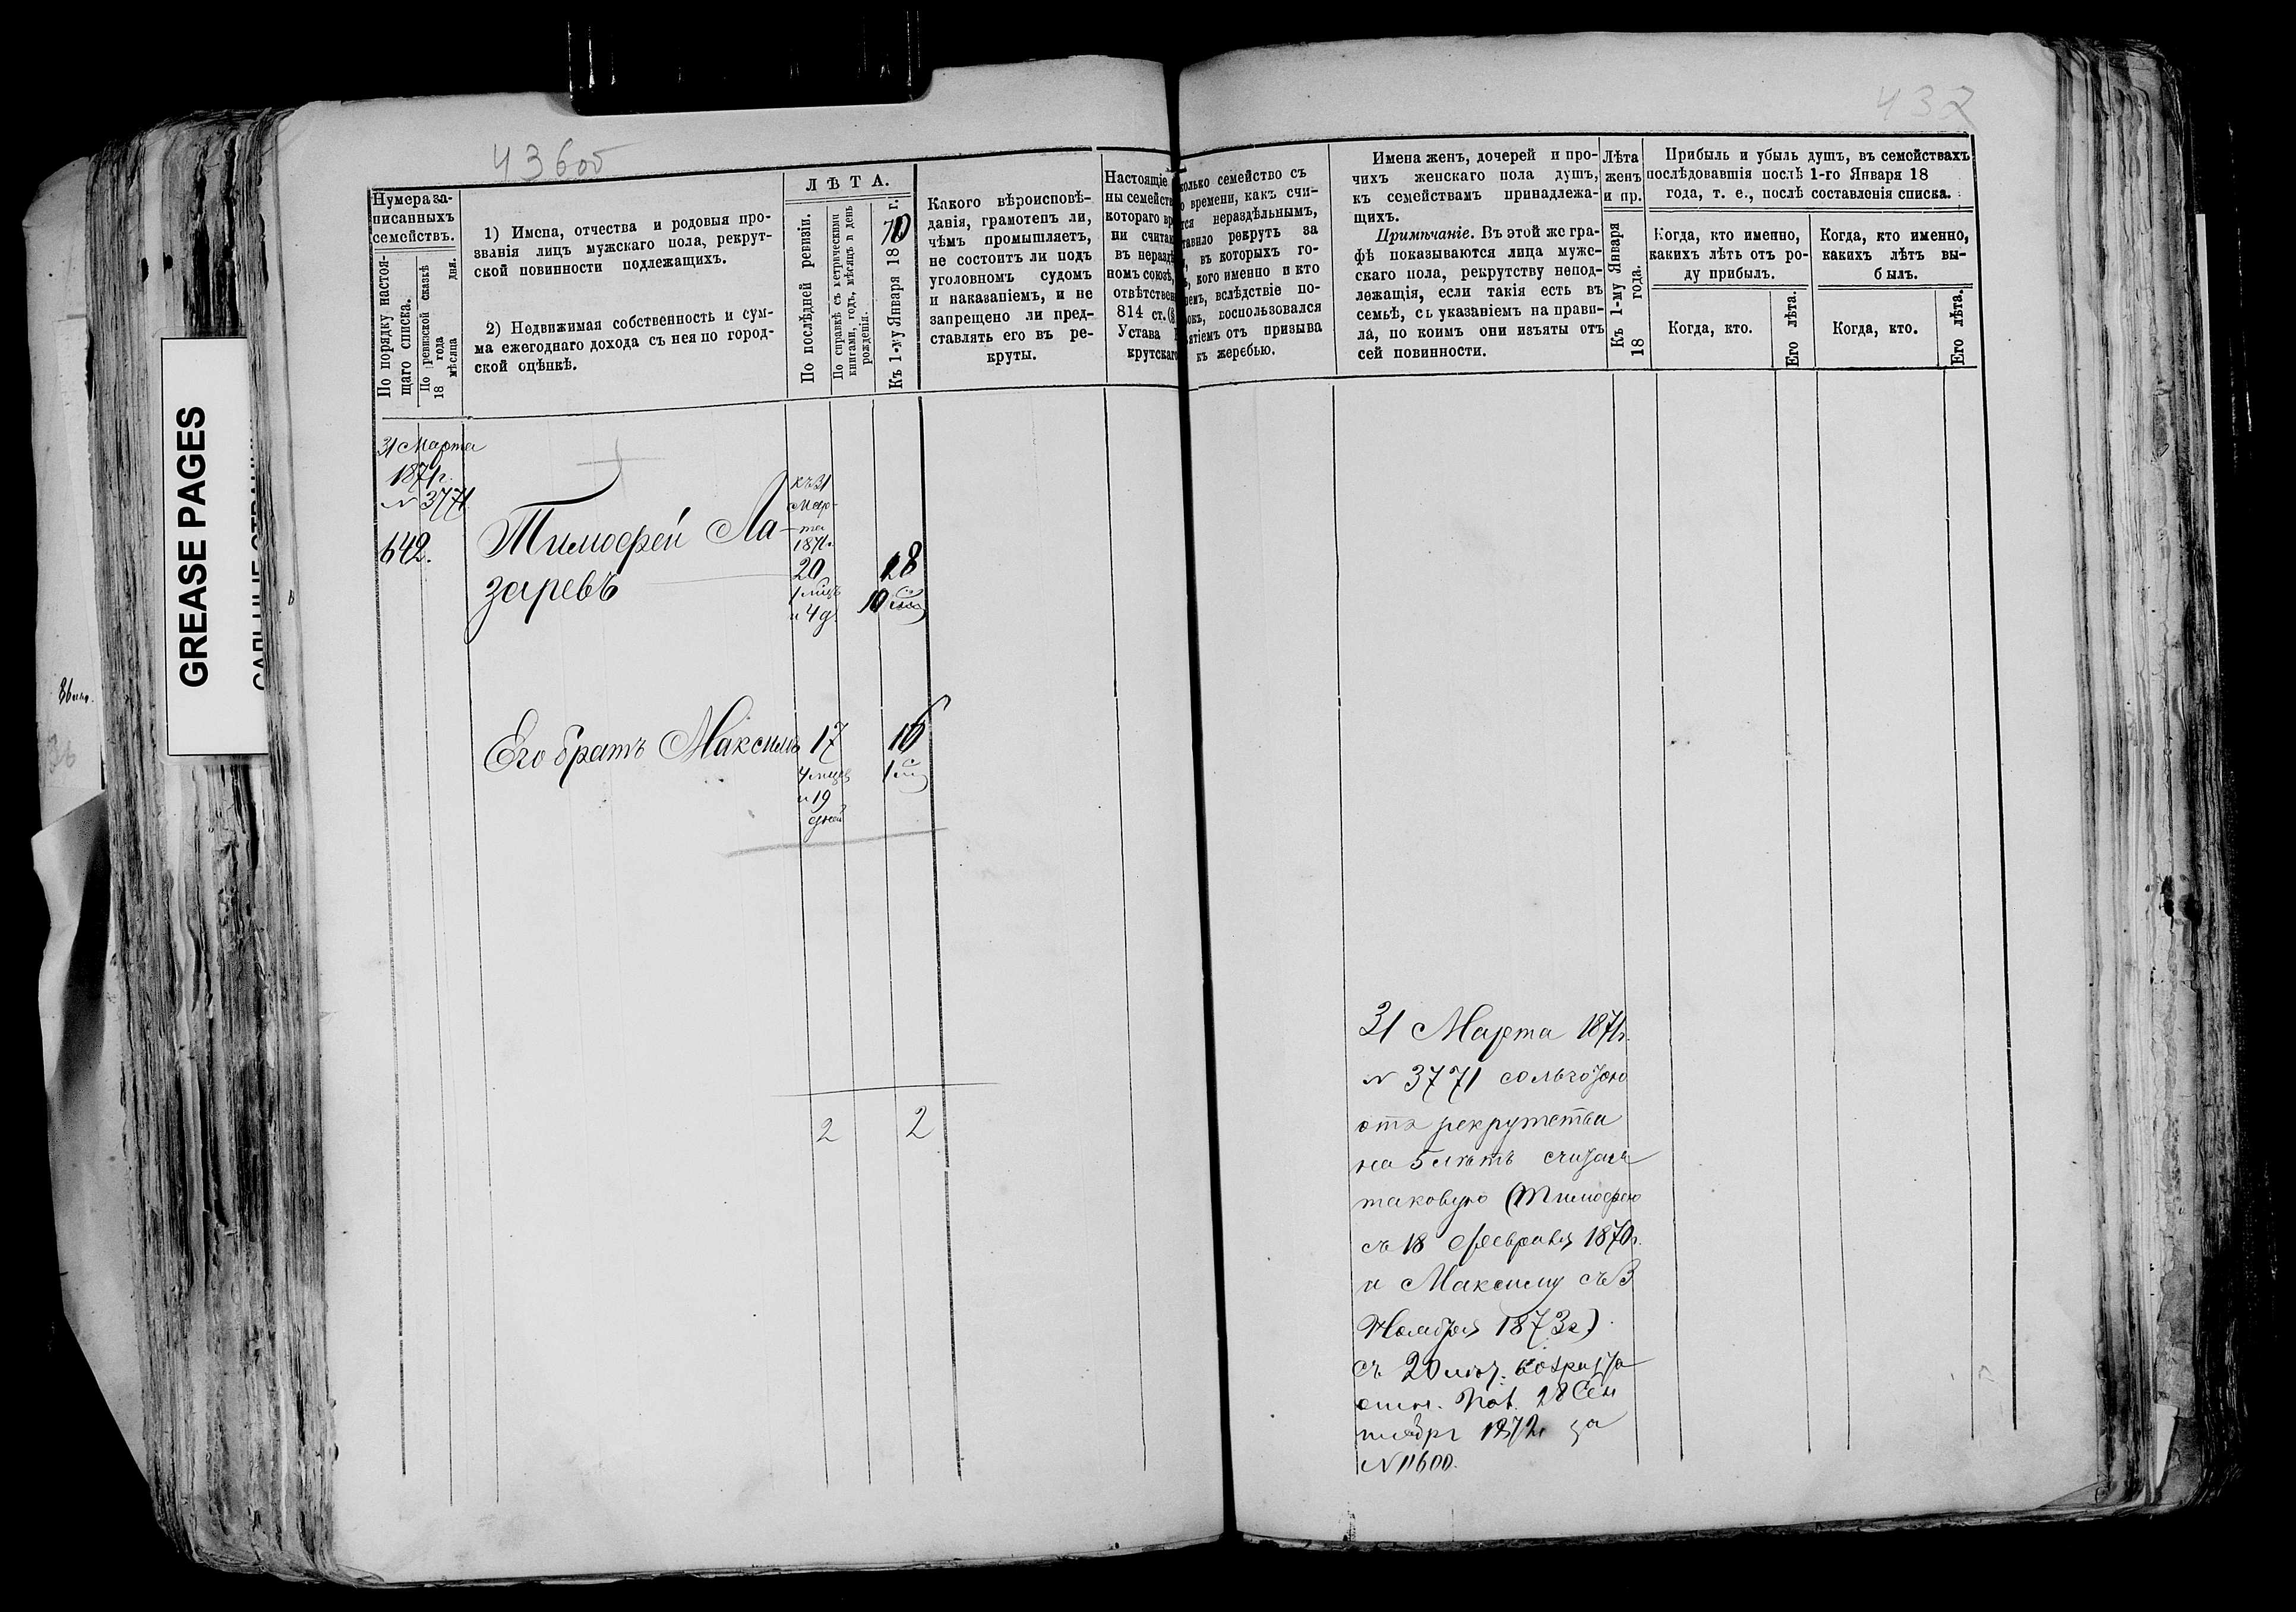 436об
432
GREASE PAGES
Нумера за-
писанныхъ
семействъ.
По порядку настоя-
щаго списка.
По ревизской сказкѣ
18 года
мѣсяца дня.
1) Имена, отчества и родовыя про-
званія лицъ мужскаго пола, рекрут-
ской повинности подлежащихъ.
2) Недвижимая собственность и сум-
ма ежегоднаго дохода съ нея по город-
ской оцѣнкѣ.
ЛѢТА.
По послѣдней ревизіи.
По справкѣ съ метрическими
книгами, годъ, мѣсяцъ и день
рожденія.
Къ 1-му Января 1870 г.
Какого вѣроисповѣ-
данія, грамотенъ ли,
чѣмъ промышляетъ,
не состоитъ ли подъ
уголовномъ судомъ
и наказаніемъ, и не
запрещено ли пред-
ставлять его въ ре-
круты.
Настоящіе
ны семейств
котораго вр
ни считаю
въ нераздѣ
номъ союзѣ,
отвѣтствен
814 ст. (§
Устава
крутскаго
колько семейство съ
о времени, какъ счи-
тся нераздѣльнымъ,
тавило рекрутъ за
, въ которыхъ го-
ъ, кого именно и кто
емъ, вслѣдствіе по-
овъ, воспользовался
ятіемъ отъ призыва
къ жеребью.
Имена женъ, дочерей и про-
чихъ женскаго пола душъ,
къ семействамъ принадлежа-
щихъ.
Примѣчаніе. Въ этой же гра-
фѣ показываются лица муже-
скаго пола, рекрутству непод-
лежащія, если такія есть въ
семьѣ, съ указаніемъ на прави-
ла, по коимъ они изъяты отъ
сей повинности.
Лѣта
женъ
и пр.
Къ 1-му Января
18 года.
Прибыль и убыль душъ, въ семействахъ
послѣдовавшія послѣ 1-го Января 18
года, т. е., послѣ составленія списка.
Когда, кто именно,
какихъ лѣтъ отъ ро-
ду прибылъ.
Когда, кто именно,
какихъ лѣтъ вы-
былъ.
Когда, кто.
Его лѣта.
Когда, кто.
Его лѣта.
31 Марта
1871г.
N 3771
642.
Тимофей Ла-
заревъ
къ 31
Мар-
та
1871г.
20
1 мцъ
и 4 д
18
10
Его братъ Максимъ
17
4 мцев
и 19
дней
16
1
2 2
31 Марта 1871г.
N 3771 сольготою
отъ рекрутства
на 5 лѣтъ считая
таковую (Тимофею
съ 18 Февраля 1870г.
и Максиму съ 3
Ноября 1873г)
съ 20
28 Сен
тября 1872г за
N 11600.